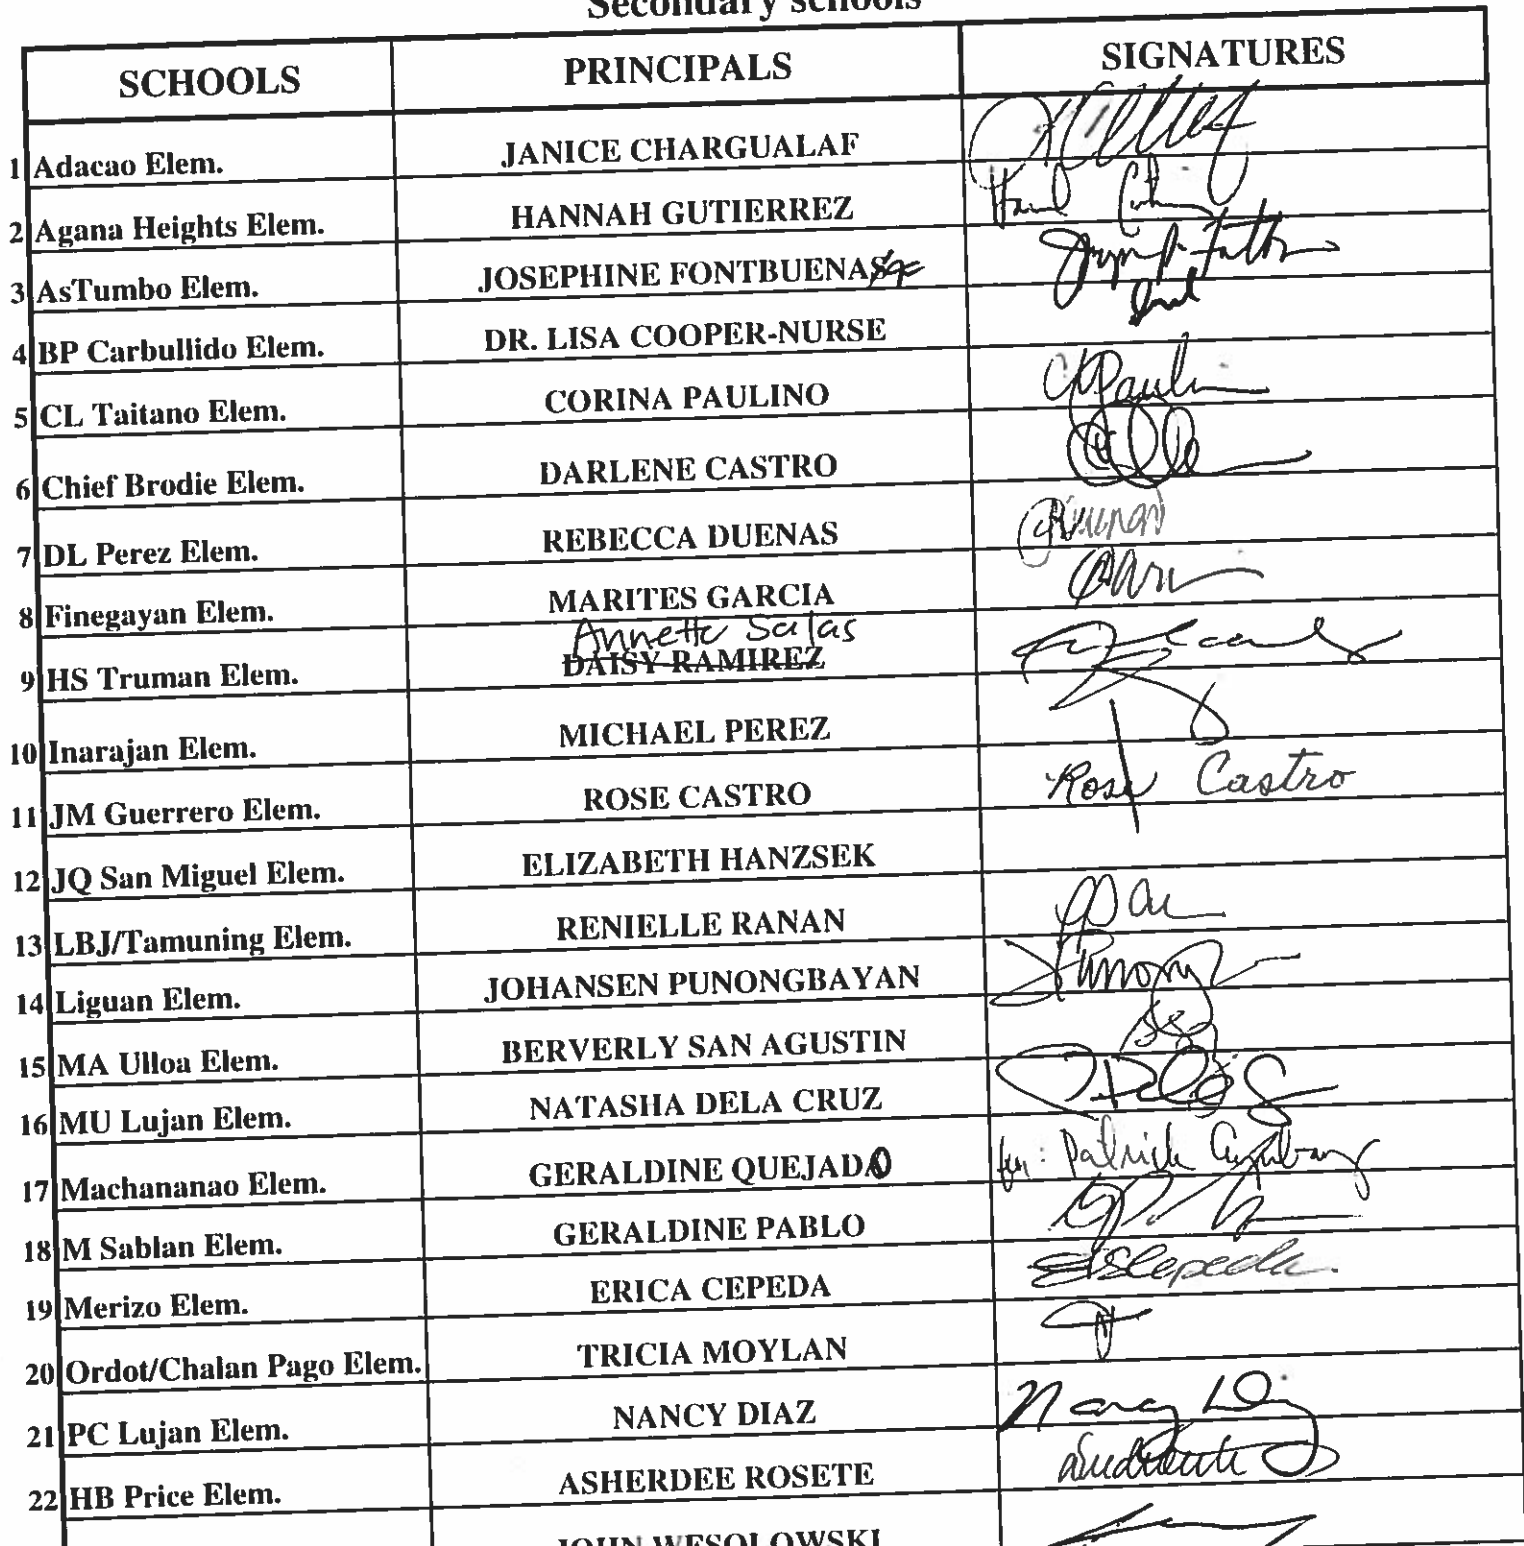 Secondary schools
SCHOOLS PRINCIPALS SIGNATURES
1 Adacao Elem. JANICE CHARGUALAF
2 Agana Heights Elem. HANNAH GUTIERREZ
3 AsTumbo Elem. JOSEPHINE FONTBUENA
4 BP Carbullido Elem. DR. LISA COOPER-NURSE
5 CL Taitano Elem. CORINA PAULINO
6 Chief Brodie Elem. DARLENE CASTRO
7 DL Perez Elem. REBECCA DUENAS
8 Finegayan Elem. MARITES GARCIA
Annette Salas
9 HS Truman Elem. DAISY RAMIREZ
10 Inarajan Elem. MICHAEL PEREZ
11 JM Guerrero Elem. ROSE CASTRO Rose Castro
12 JQ San Miguel Elem. ELIZABETH HANZSEK
13 LBJ/Tamuning Elem. RENIELLE RANAN
14 Liguan Elem. JOHANSEN PUNONGBAYAN
15 MA Ulloa Elem. BERVERLY SAN AGUSTIN
16 MU Lujan Elem. NATASHA DELA CRUZ
17 Machananao Elem. GERALDINE QUEJADO for: Patrick
18 M Sablan Elem. GERALDINE PABLO
19 Merizo Elem. ERICA CEPEDA
20 Ordot/Chalan Pago Elem. TRICIA MOYLAN
21 PC Lujan Elem. NANCY DIAZ Nancy Diaz
22 HB Price Elem. ASHERDEE ROSETE
JOHN WESOLOWSKI